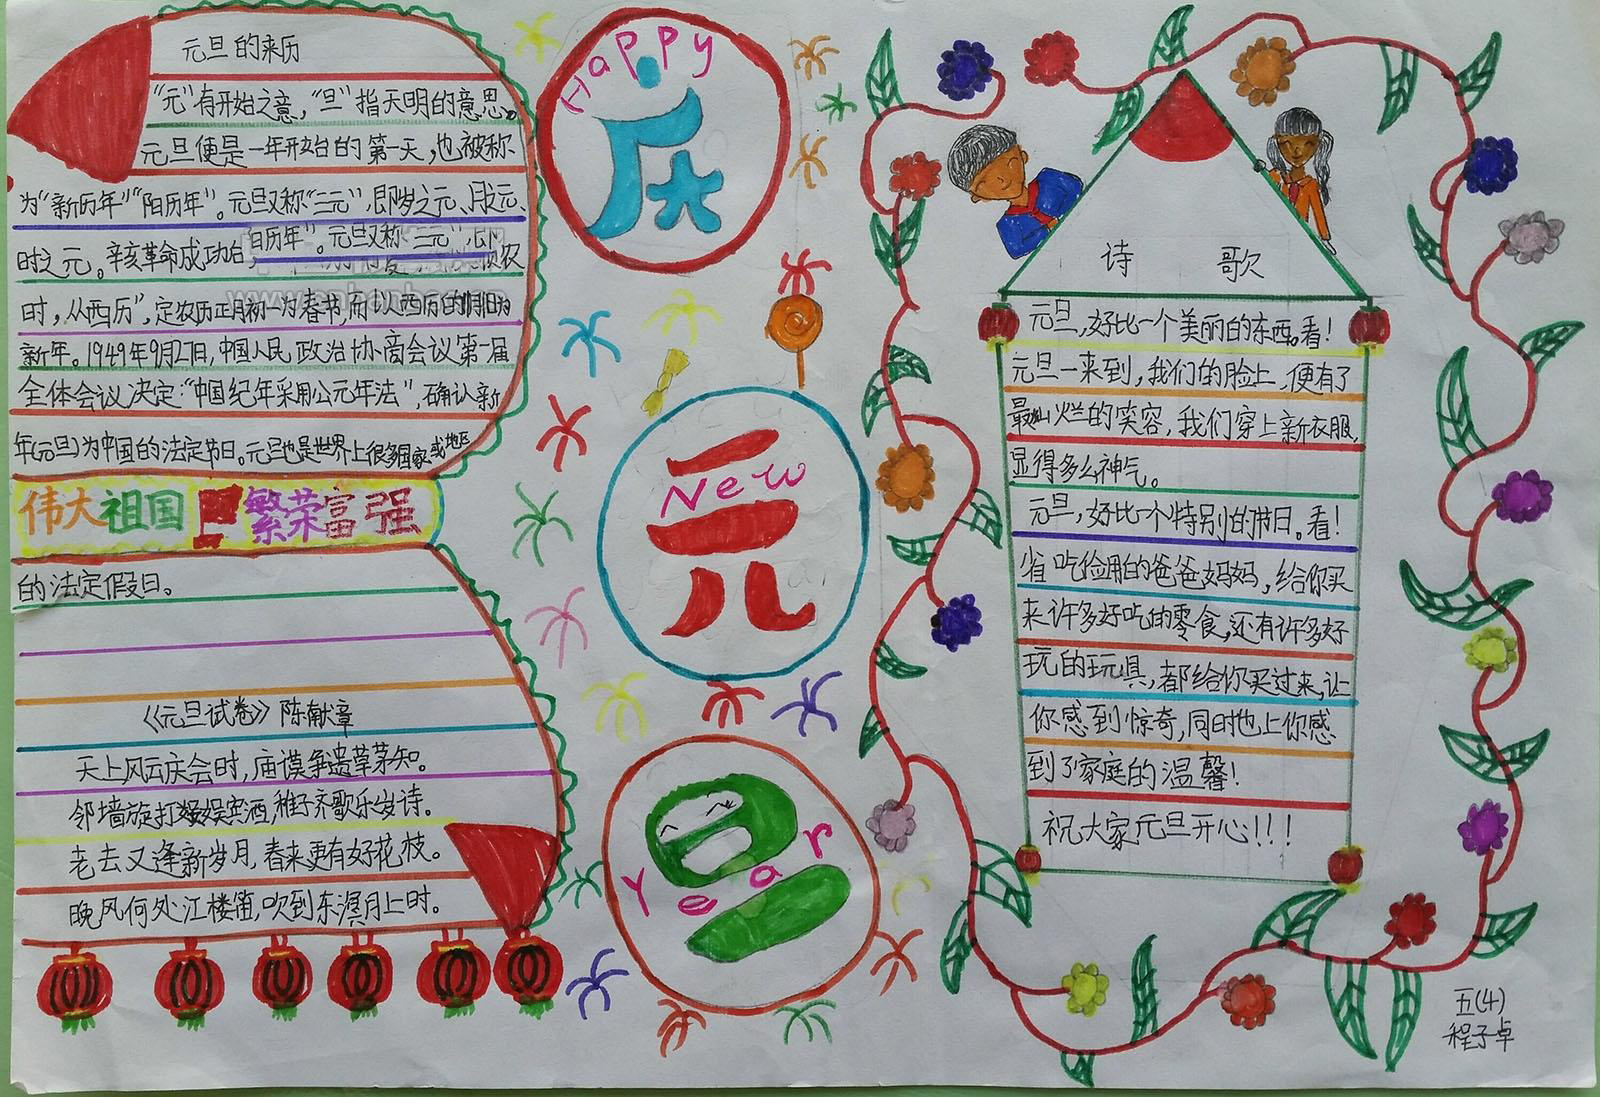 元旦的来历
"元"有开始之意，"旦"指天明的意思。
元旦便是一年开始的第一天，也被称
为"新历年""阳历年"。元旦又称"三元"，即岁之元、月之元、
时之元。辛亥革命成功后，
日历年"。元旦又称"三元"，即
农
时，从西历"，定农历正月初一为春节，而以西历的1月1日为
新年。1949年9月27日，中国人民政治协商会议第一届
全体会议决定："中国纪年采用公元年法"，确认新
年(元旦)为中国的法定节日。元旦也是世界上很多国家或地区
伟大祖国 繁荣富强
的法定假日。
《元旦试卷》陈献章
天上风云庆会时，庙谟争遗草茅知。
邻墙旋打娱宾酒，稚子齐歌乐岁诗。
老去又逢新岁月，春来更有好花枝。
晚风何处江楼笛，吹到东溟月上时。
Happy
庆
New
元
旦
Year
诗 歌
元旦，好比一个美丽的东西。看！
元旦一来到，我们的脸上，便有了
最灿烂的笑容，我们穿上新衣服，
显得多么神气。
元旦，好比一个特别的节日。看！
省吃俭用的爸爸妈妈，给你买
来许多好吃的零食，还有许多好
玩的玩具，都给你买过来，让
你感到惊奇，同时也上你感
到了家庭的温馨！
祝大家元旦开心！！！
五(4)
程子卓